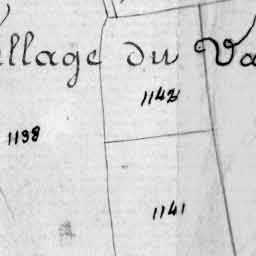 illage du Va
1142
1138
1141